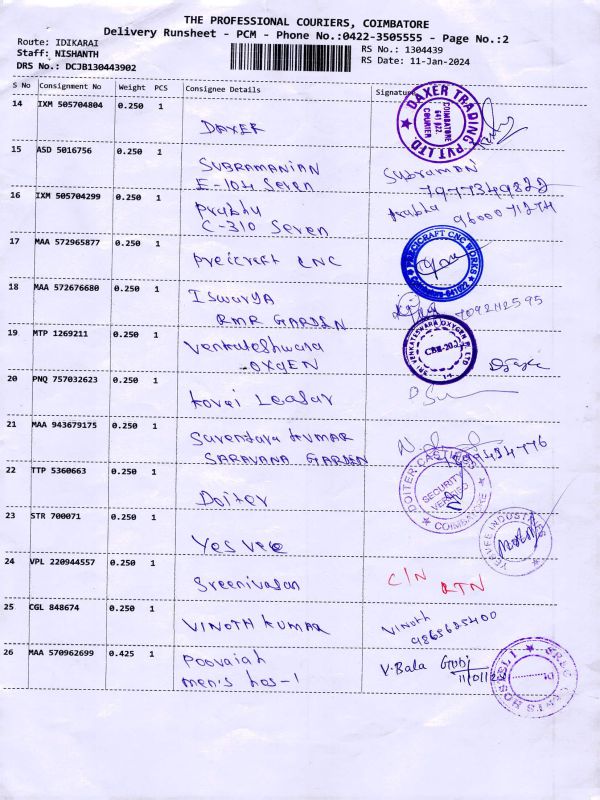 THE PROFESSIONAL COURIERS, COIMBATORE
Delivery Runsheet - PCM - Phone No.:0422-3505555 - Page No.:2
Route: IDIKARAI
Staff: NISHANTH
DRS No.: DCJB130443902
RS No.: 1304439
RS Date: 11-Jan-2024
S No Consignment No Weight PCS Consignee Details Signature
14 IXM 505704804 0.250 1 DAXER
DAXER TRADING PVT LTD COIMBATORE 641 022. COURIER
15 ASD 5016756 0.250 1 SUBRAMANIAN Subraman
E-104 Seven 7977349822
16 IXM 505704299 0.250 1 Prabhu Prabha
C-310 Seven 9600071274
17 MAA 572965877 0.250 1 Preicraft CNC
PRECICRAFT CNC WORKS
18 MAA 572676680 0.250 1 ISWARYA 7092112595
RMR GARDEN
19 MTP 1269211 0.250 1 Venkateshwara
OXGEN
SRI VENKATESWARA OXYGEN P. LTD CBE-20
20 PNQ 757032623 0.250 1 Kovai Leasar
21 MAA 943679175 0.250 1 Surendara KUMAR
SARAVANA GARDEN
22 TTP 5360663 0.250 1 Doiter
DOITER CASTINGS SECURITY VERIFIED COIMBATORE
23 STR 700071 0.250 1 Yes vee
YESVEE INDUSTRIES
24 VPL 220944557 0.250 1 Sreenivasan C/N RTN
25 CGL 848674 0.250 1 VINOTH KUMAR Vinoth
9865685400
26 MAA 570962699 0.425 1 Poovaiah V.Bala
men's hos-1